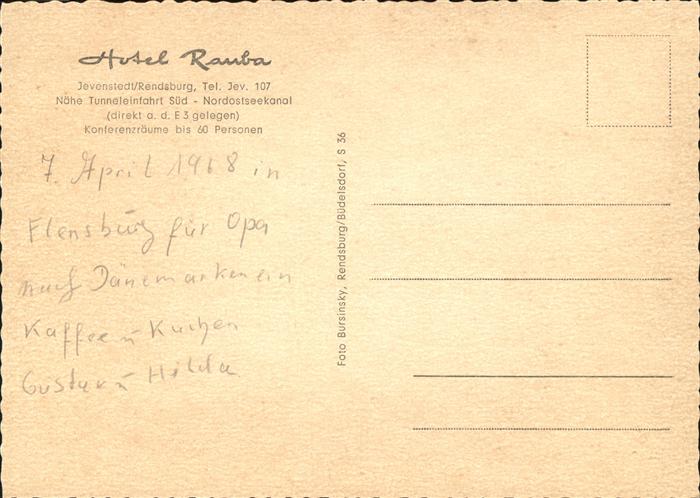 Hotel Rauba
Jevenstedt/Rendsburg, Tel. Jev. 107
Nähe Tunneleinfahrt Süd - Nordostseekanal
(direkt a. d. E 3 gelegen)
Konferenzräume bis 60 Personen
7. April 1968 in
Flensburg für Opa
nach Dänemark ein
Kaffee u Kuchen
Gustav u Hilda
Foto Bursinsky, Rendsburg/Büdelsdorf, S 36